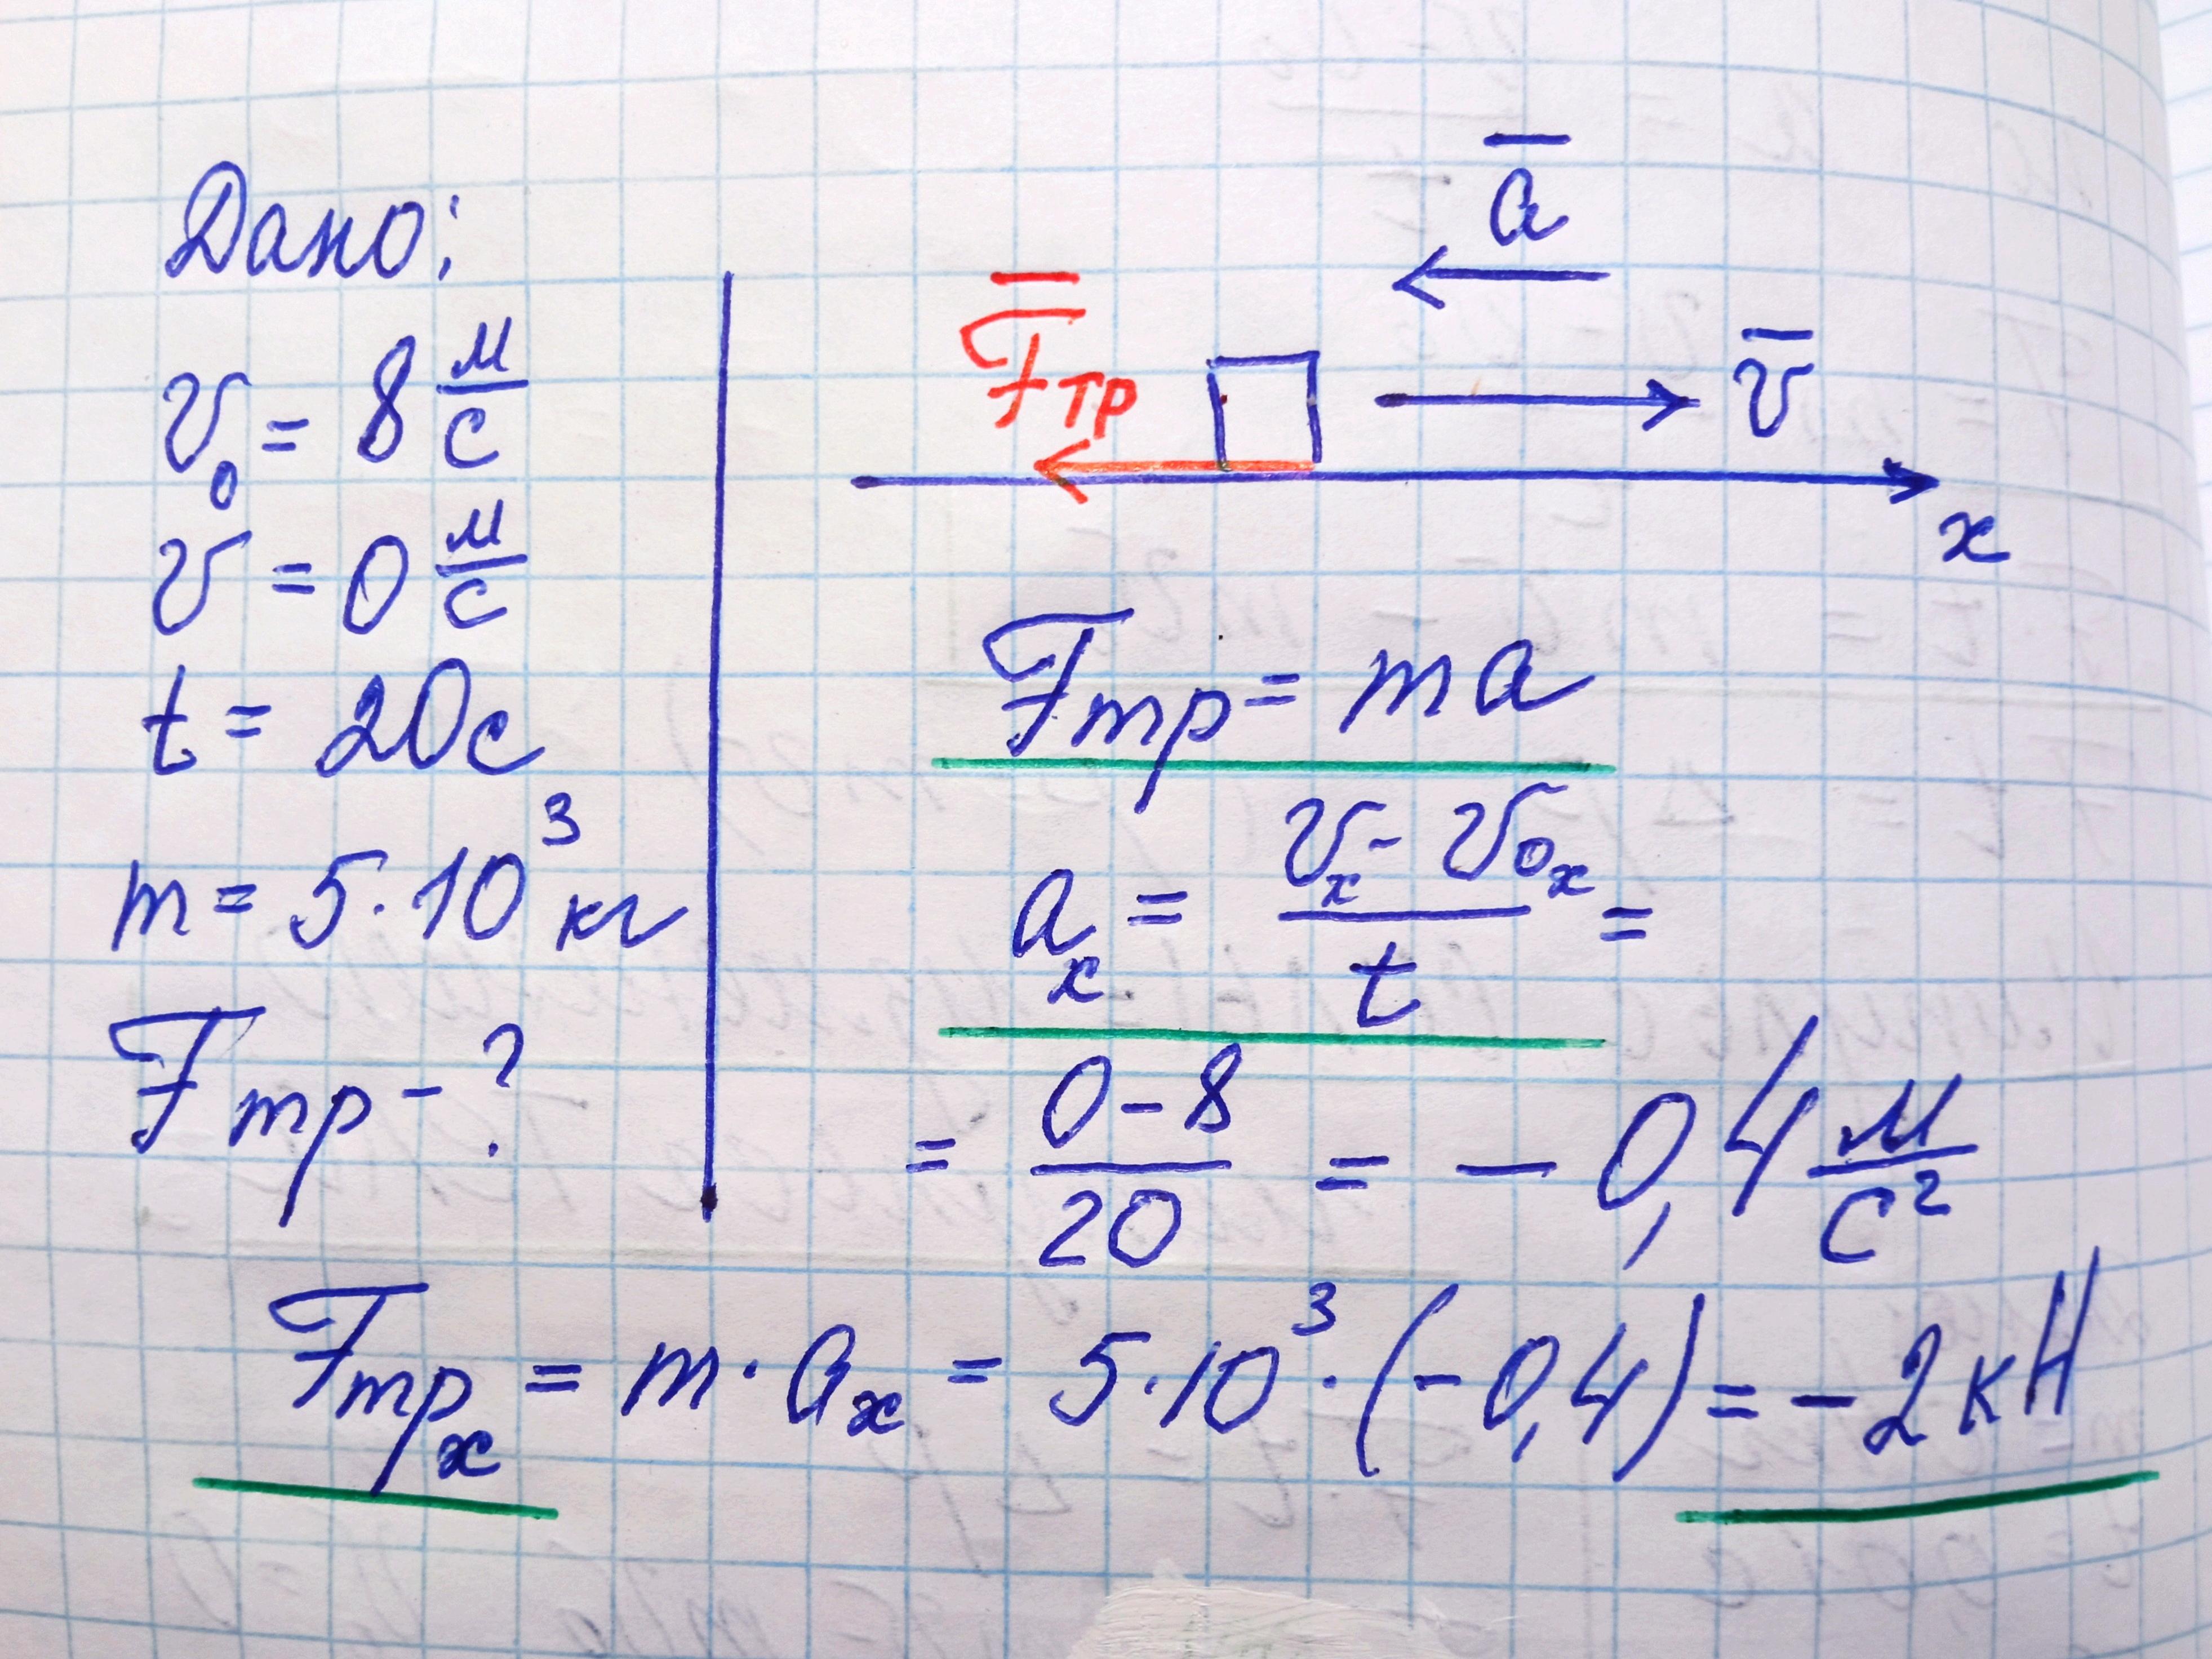 Дано:
v₀ = 8 м/с
v = 0 м/с
t = 20с
m = 5·10³ кг
Fтр - ?
a̅
F̅тр
v̅
x
Fтр = ma
aₓ = (vₓ - v₀ₓ)/t =
= (0-8)/20 = - 0,4 м/с²
Fтрₓ = m·aₓ = 5·10³·(-0,4) = -2кН